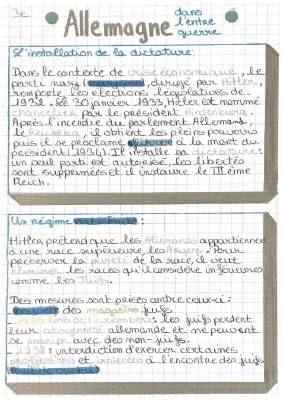 3e
Allemagne dans l'entre guerre
L'installation de la dictature:
Dans le contexte de crise économique, le
parti nazi dirigé par Hitler,
remporte les élections législatives de
1932. Le 30 janvier 1933, Hitler est nommé
chancelier par le président Hindenburg.
Après l'incendie du parlement Allemand,
le Reichstag, il obtient les pleins pouvoirs
puis il se proclame Führer à la mort du
président (1934). Il installe sa dictature:
un seul parti est autorisé, les libertés
sont supprimées et il instaure le IIIème
Reich.
Un régime antisémite:
Hitler prétend que les Allemands appartiennent
à une race supérieure les Aryens. Pour
préserver la pureté de la race, il veut
éliminer les races qu'il considère inférieures
comme les Juifs.
Des mesures sont prises contre ceux-ci:
boycott des magasins juifs
lois de Nuremberg: les juifs perdent
leur citoyenneté allemande et ne peuvent
se marier avec des non-juifs.
1938: interdiction d'exercer certaines
professions et violences à l'encontre des juifs
Nuit de cristal